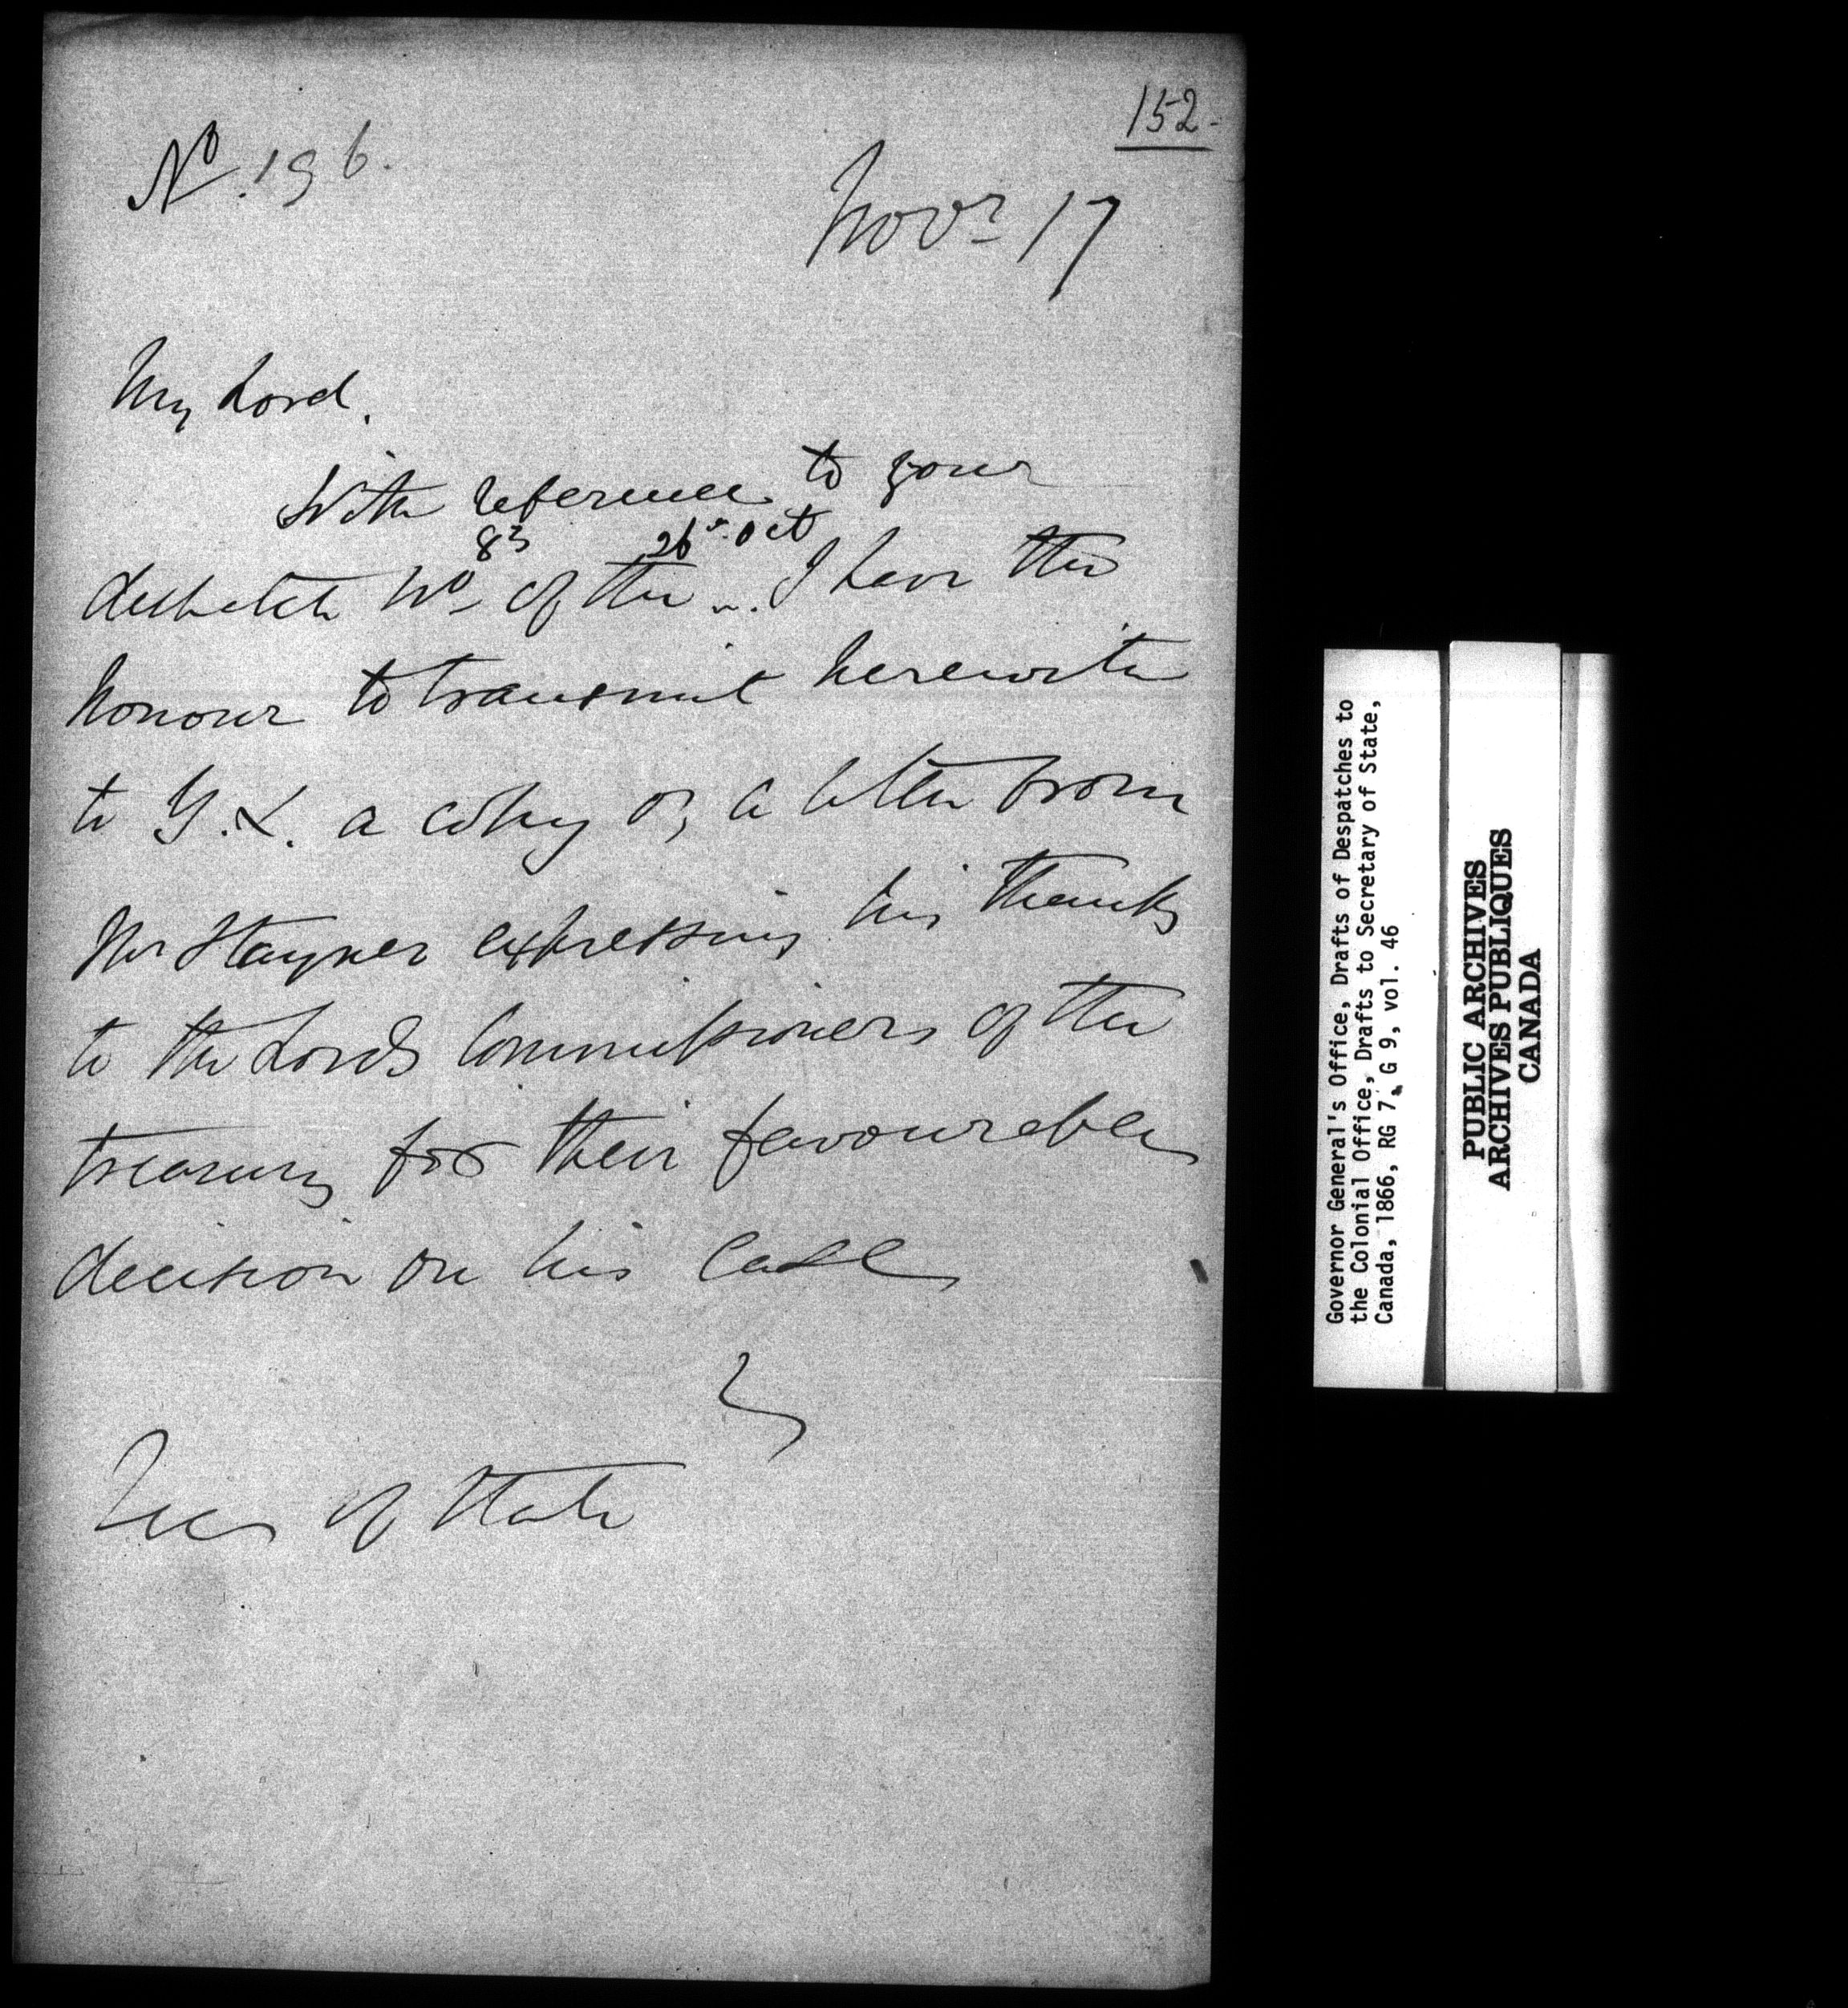 152.
No. 196.
Novr 17
My Lord.
With reference to your
83 26th Oct
despatch No of the ... I have the
honour to transmit herewith
to Y.L. a copy of a letter from
Mr Stayner expressing his thanks
to the Lords Commissioners of the
treasury for their favourable
decision on his case
Secy of State
Governor General's Office, Drafts of Despatches to
the Colonial Office, Drafts to Secretary of State,
Canada, 1866, RG 7, G 9, vol. 46
PUBLIC ARCHIVES
ARCHIVES PUBLIQUES
CANADA